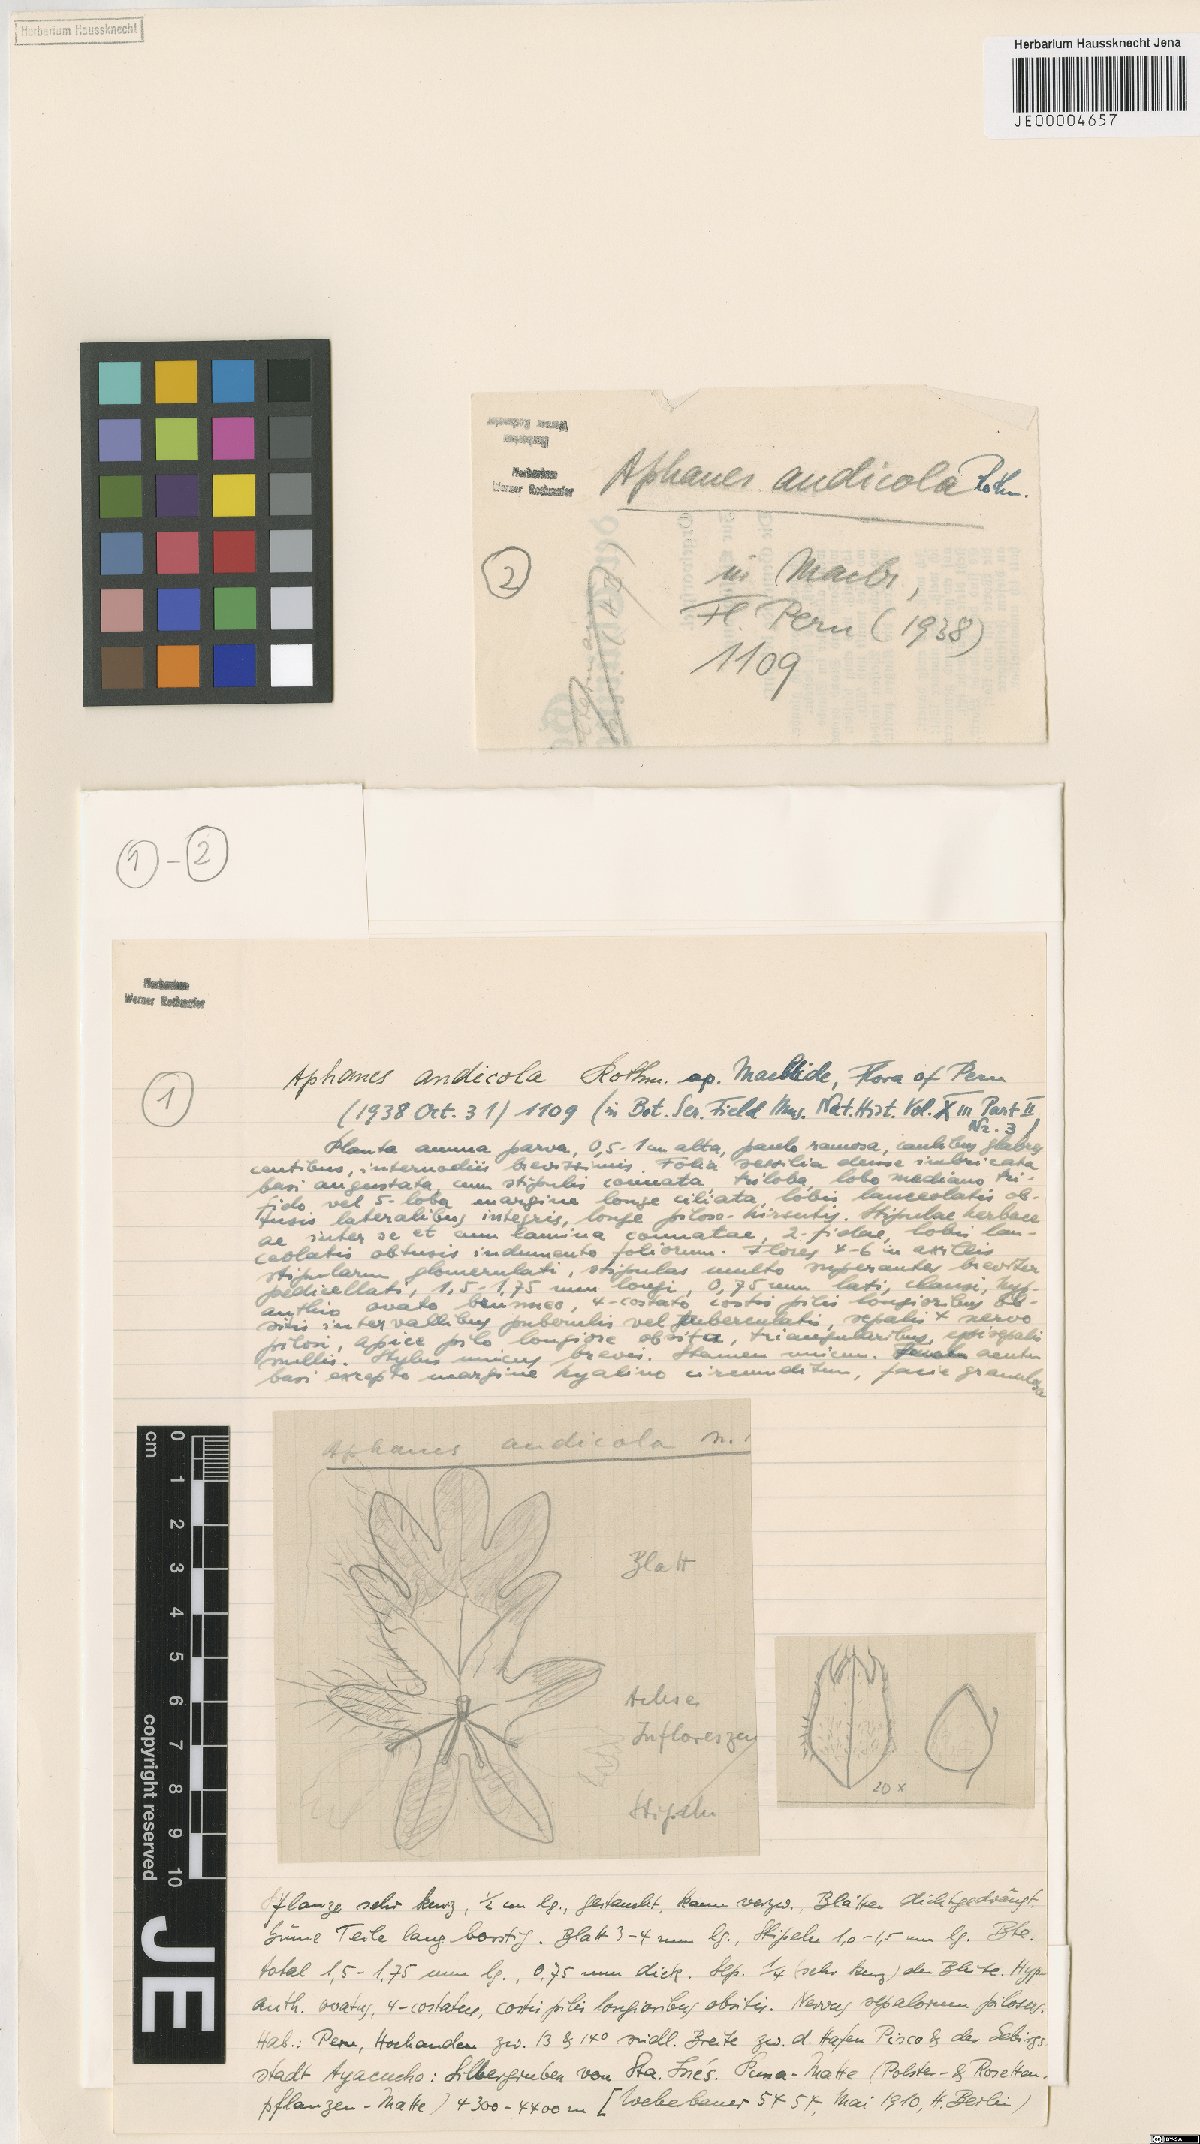 Herbarium Haussknecht
Herbarium Haussknecht Jena
JE00004657
Herbarium
Werner Rothmaler
Aphanes andicola Rothm.
2
in Macbr,
Fl. Peru (1938)
1109
1 - 2
Herbarium
Werner Rothmaler
1
Aphanes andicola Rothm. ap. Macbride, Flora of Peru
(1938 Oct. 31) 1109 (in Bot. Ser. Field Mus. Nat. Hist. Vol. XIII Part II
Nr. 3)
Planta annua parva, 0,5-1 cm alta, paulo ramosa, caulibus glabres
centibus, internodiis brevissimis. Folia sessilia dense imbricata
basi angustata, cum stipulis connata triloba, lobo mediano tri-
fido vel 5-loba margine longe ciliata, lobis lanceolatis ob-
tusis lateralibus integris, longe piloso-hirsutis. Stipulae herbace
ae inter se et cum lamina connatae, 2-fidae, lobis lan-
ceolatis obtusis indumento foliorum. Flores 4-6 in axillis
stipularum glomerulati, stipulas multo superantes breviter
pedicellati, 1,5-1,75 mm longi, 0,75 mm lati, clausi, hyp-
anthio ovato 4-costato costis pilis longioribus ob-
sitis intervallibus puberulis vel tuberculatis, sepalis ± nervo
pilosi, apice pilo longiore obsita, triangularibus, episepalis
nullis. Stylus unicus brevis. Stamen unicum. acutu
basi excepto margine hyalino circumditum, facie granulosa
Aphanes andicola n.
Blatt
Achse
Infloreszen
Stipeln
20 x
Pflanze sehr kurz, ½ cm lg., gestaucht, kaum verzw., Blätter dichtgedrängt
Grüne Teile lang borstig. Blatt 3-4 mm lg., Stipeln 1,0-1,5 mm lg. Bte.
total 1,5-1,75 mm lg., 0,75 mm dick. Sep. ¼ (sehr kurz) der Blüte. Hyp
anth. ovatus, 4-costatus, costis pilis longioribus obsitis. Nervus sepalorum pilosus.
Hab.: Peru, Hochanden zw. 13 & 14° südl. Breite zw. d Hafen Pisco & der Gebirgs
stadt Ayacucho: Silbergruben von Sta. Inés. Puna-Matte (Polster- & Rosetten-
pflanzen-Matte) 4300-4400 m [Weberbauer 5454, Mai 1910, H. Berlin)
cm
0
1
2
3
4
5
6
7
8
9
10
copyright reserved
JE